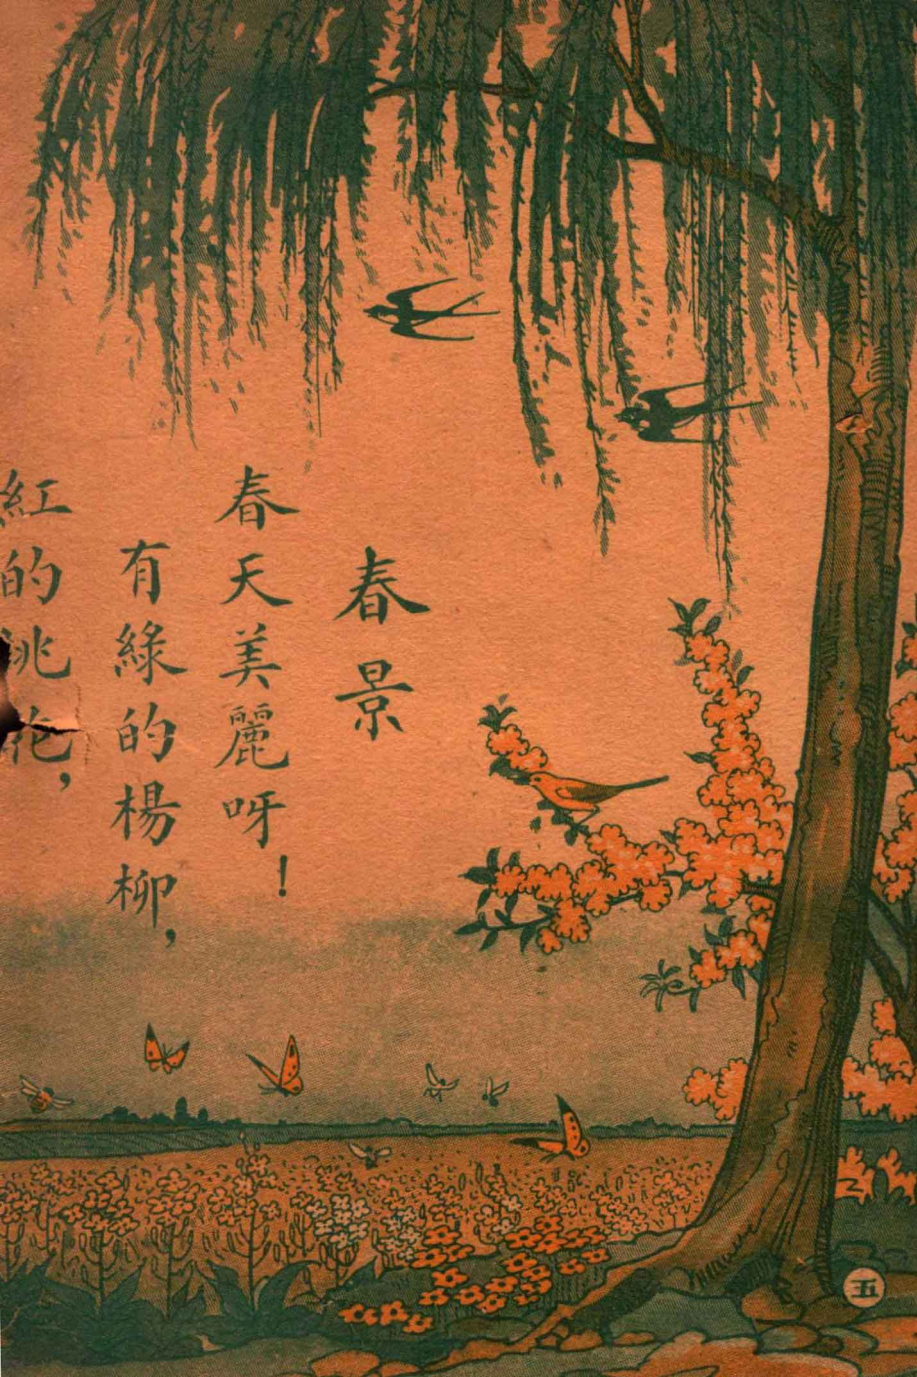 春景
春天美麗呀!
有綠的楊柳,
紅的桃花,
五